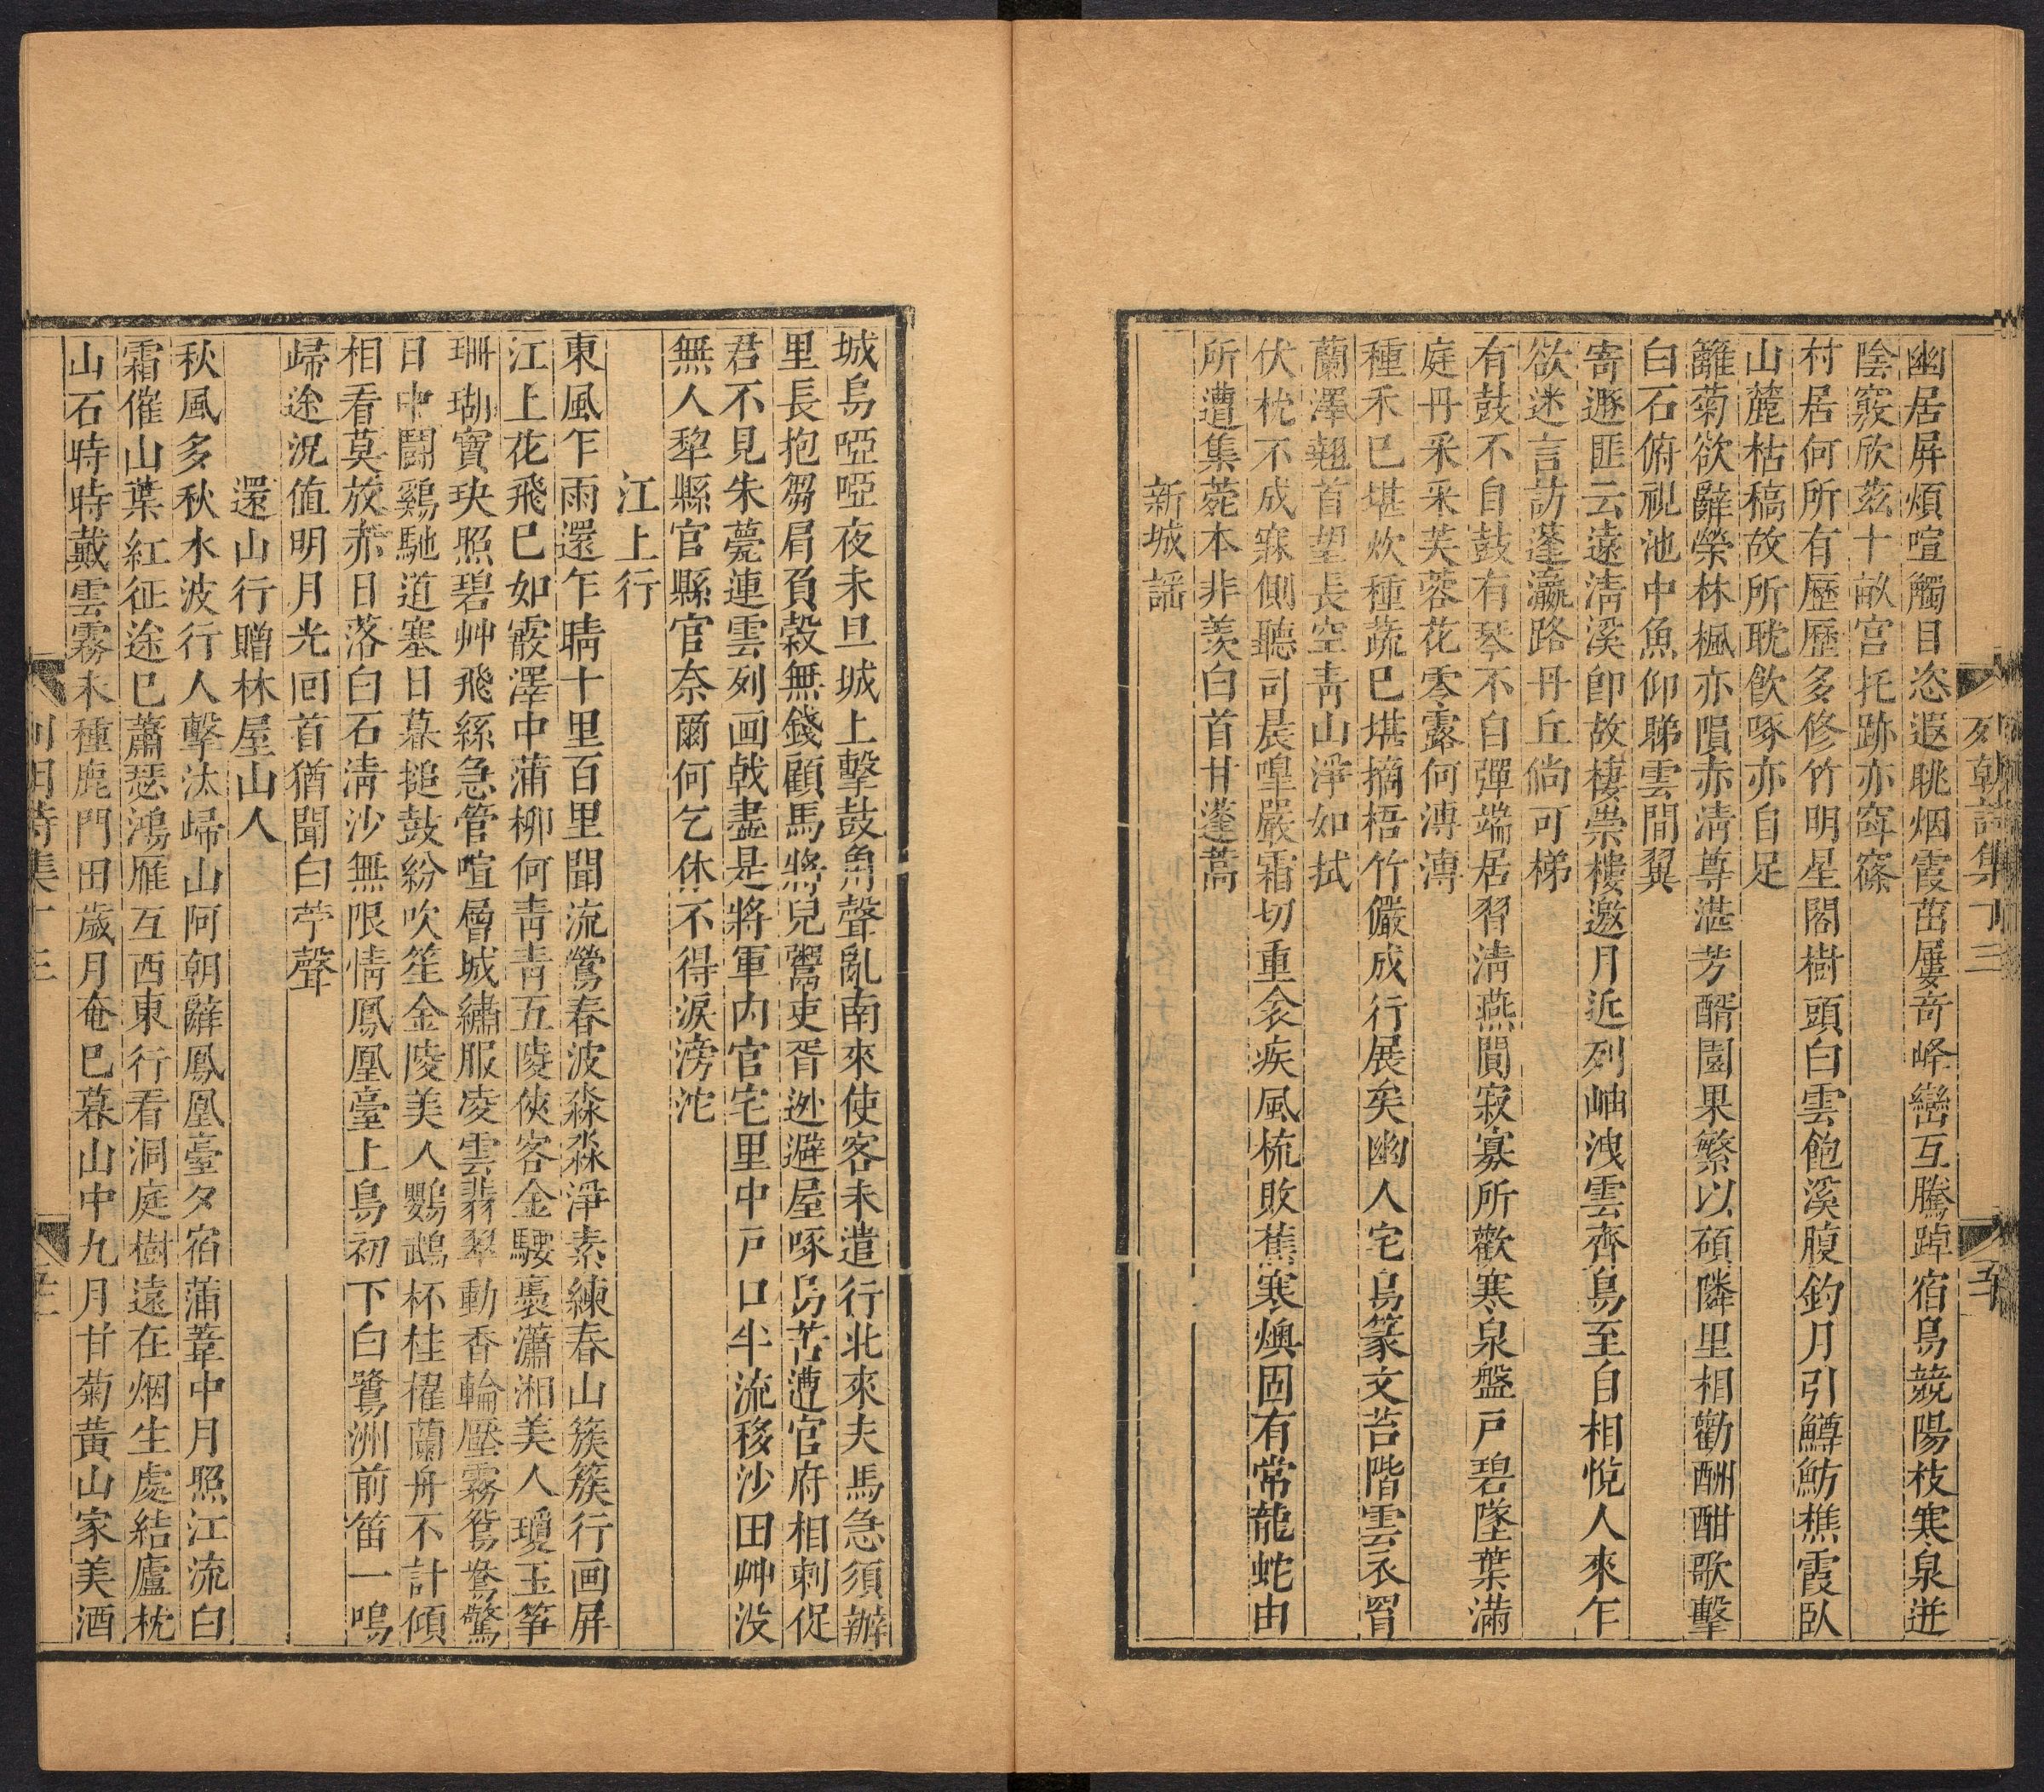 列朝詩集丁三
五
幽居屏煩喧觸目恣遐眺烟霞茁屢奇峰巒互騰踔宿鳥競陽枝寒泉迸
陰竅欣茲十畝宮托跡亦窊窱
村居何所有歷歷多修竹明星閣樹頭白雲飽溪腹釣月引鱒魴樵霞臥
山麓枯稿故所耽飲啄亦自足
籬菊欲辭榮林楓亦隕赤清尊湛芳醑園果繁以碩隣里相勸酬酣歌擊
白石俯視池中魚仰睇雲間翼
寄遯匪云遠清溪卽故棲崇樓邀月近列岫洩雲齊鳥至自相悅人來乍
欲迷言訪蓬瀛路丹丘倘可梯
有鼓不自鼓有琴不自彈端居習清燕閴寂寡所歡寒泉盤戶碧墜葉滿
庭丹采采芙蓉花零露何漙漙
種禾已堪炊種蔬已堪摘梧竹儼成行展矣幽人宅鳥篆文苔階雲衣罥
蘭澤翹首望長空青山淨如拭
伏枕不成寐側聽司晨喤嚴霜切重衾疾風梳敗蕉寒燠固有常龍蛇由
所遭集菀本非羨白首甘蓬蒿
新城謡
城烏啞啞夜未旦城上擊鼓角聲亂南來使客未遣行北來夫馬急須辦
里長抱芻肩負穀無錢顧馬將兒鬻吏胥迯避屋啄烏苦遭官府相刺促
君不見朱甍連雲列画戟盡是將軍内官宅里中戶口半流移沙田艸没
無人犂縣官縣官奈爾何乞休不得淚滂沱
江上行
東風乍雨還乍晴十里百里聞流鶯春波淼淼淨素練春山簇簇行画屏
江上花飛已如霰澤中蒲柳何青青五陵俠客金騕褭瀟湘美人瓊玉筝
珊瑚寶玦照碧艸飛絲急管喧層城繡服凌雲翡翠動香輪壓霧鴛鴦驚
日中鬪鷄馳道塞日暮搥鼓紛吹笙金陵美人鸚鵡杯桂櫂蘭舟不計傾
相看莫放赤日落白石清沙無限情鳳凰臺上鳥初下白鷺洲前笛一鳴
歸途況值明月光回首猶聞白苧聲
還山行贈林屋山人
秋風多秋水波行人擊汰歸山阿朝辭鳳凰臺夕宿蒲葦中月照江流白
霜催山葉紅征途已蕭瑟鴻雁互西東行看洞庭樹遠在烟生處結廬枕
山石時時戴雲霧未種鹿門田歲月奄已暮山中九月甘菊黃山家美酒